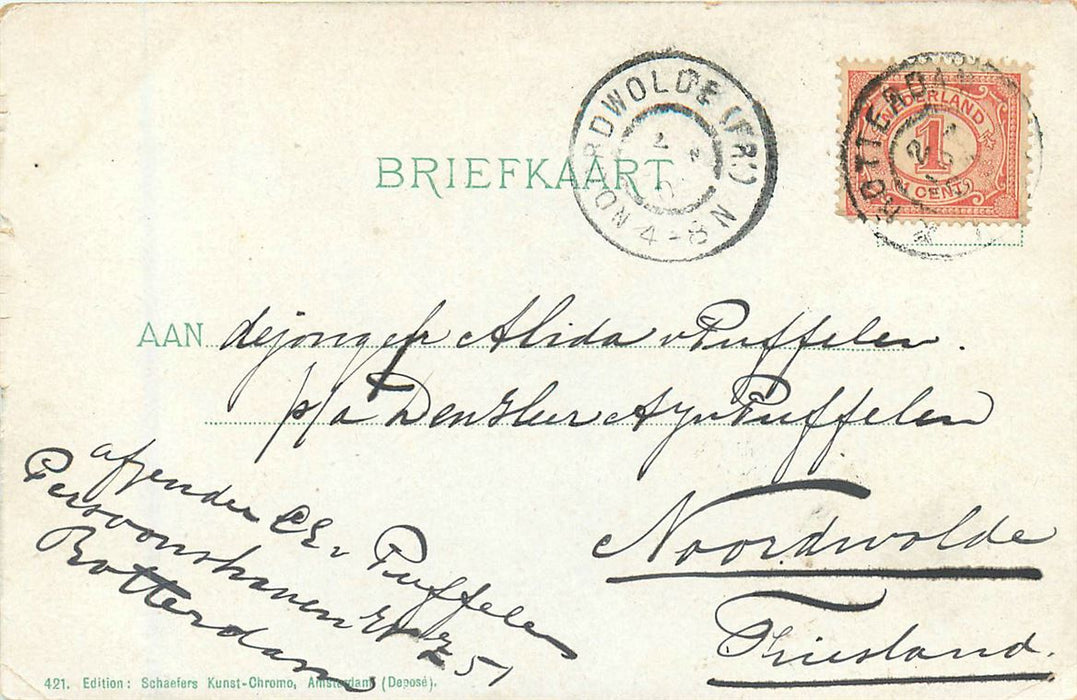 NOORDWOLDE (FR.)
4-8 N
ROTTERDAM
NEDERLAND
1
CENT
BRIEFKAART
AAN dejongeh Alida v Puffelen.
p/a Den Heer A v Puffelen
Noordwolde
Friesland.
afzender v Puffelen
Persoonshaven 51
Rotterdam
421. Edition: Schaefers Kunst-Chromo, Amsterdam (Deposé).